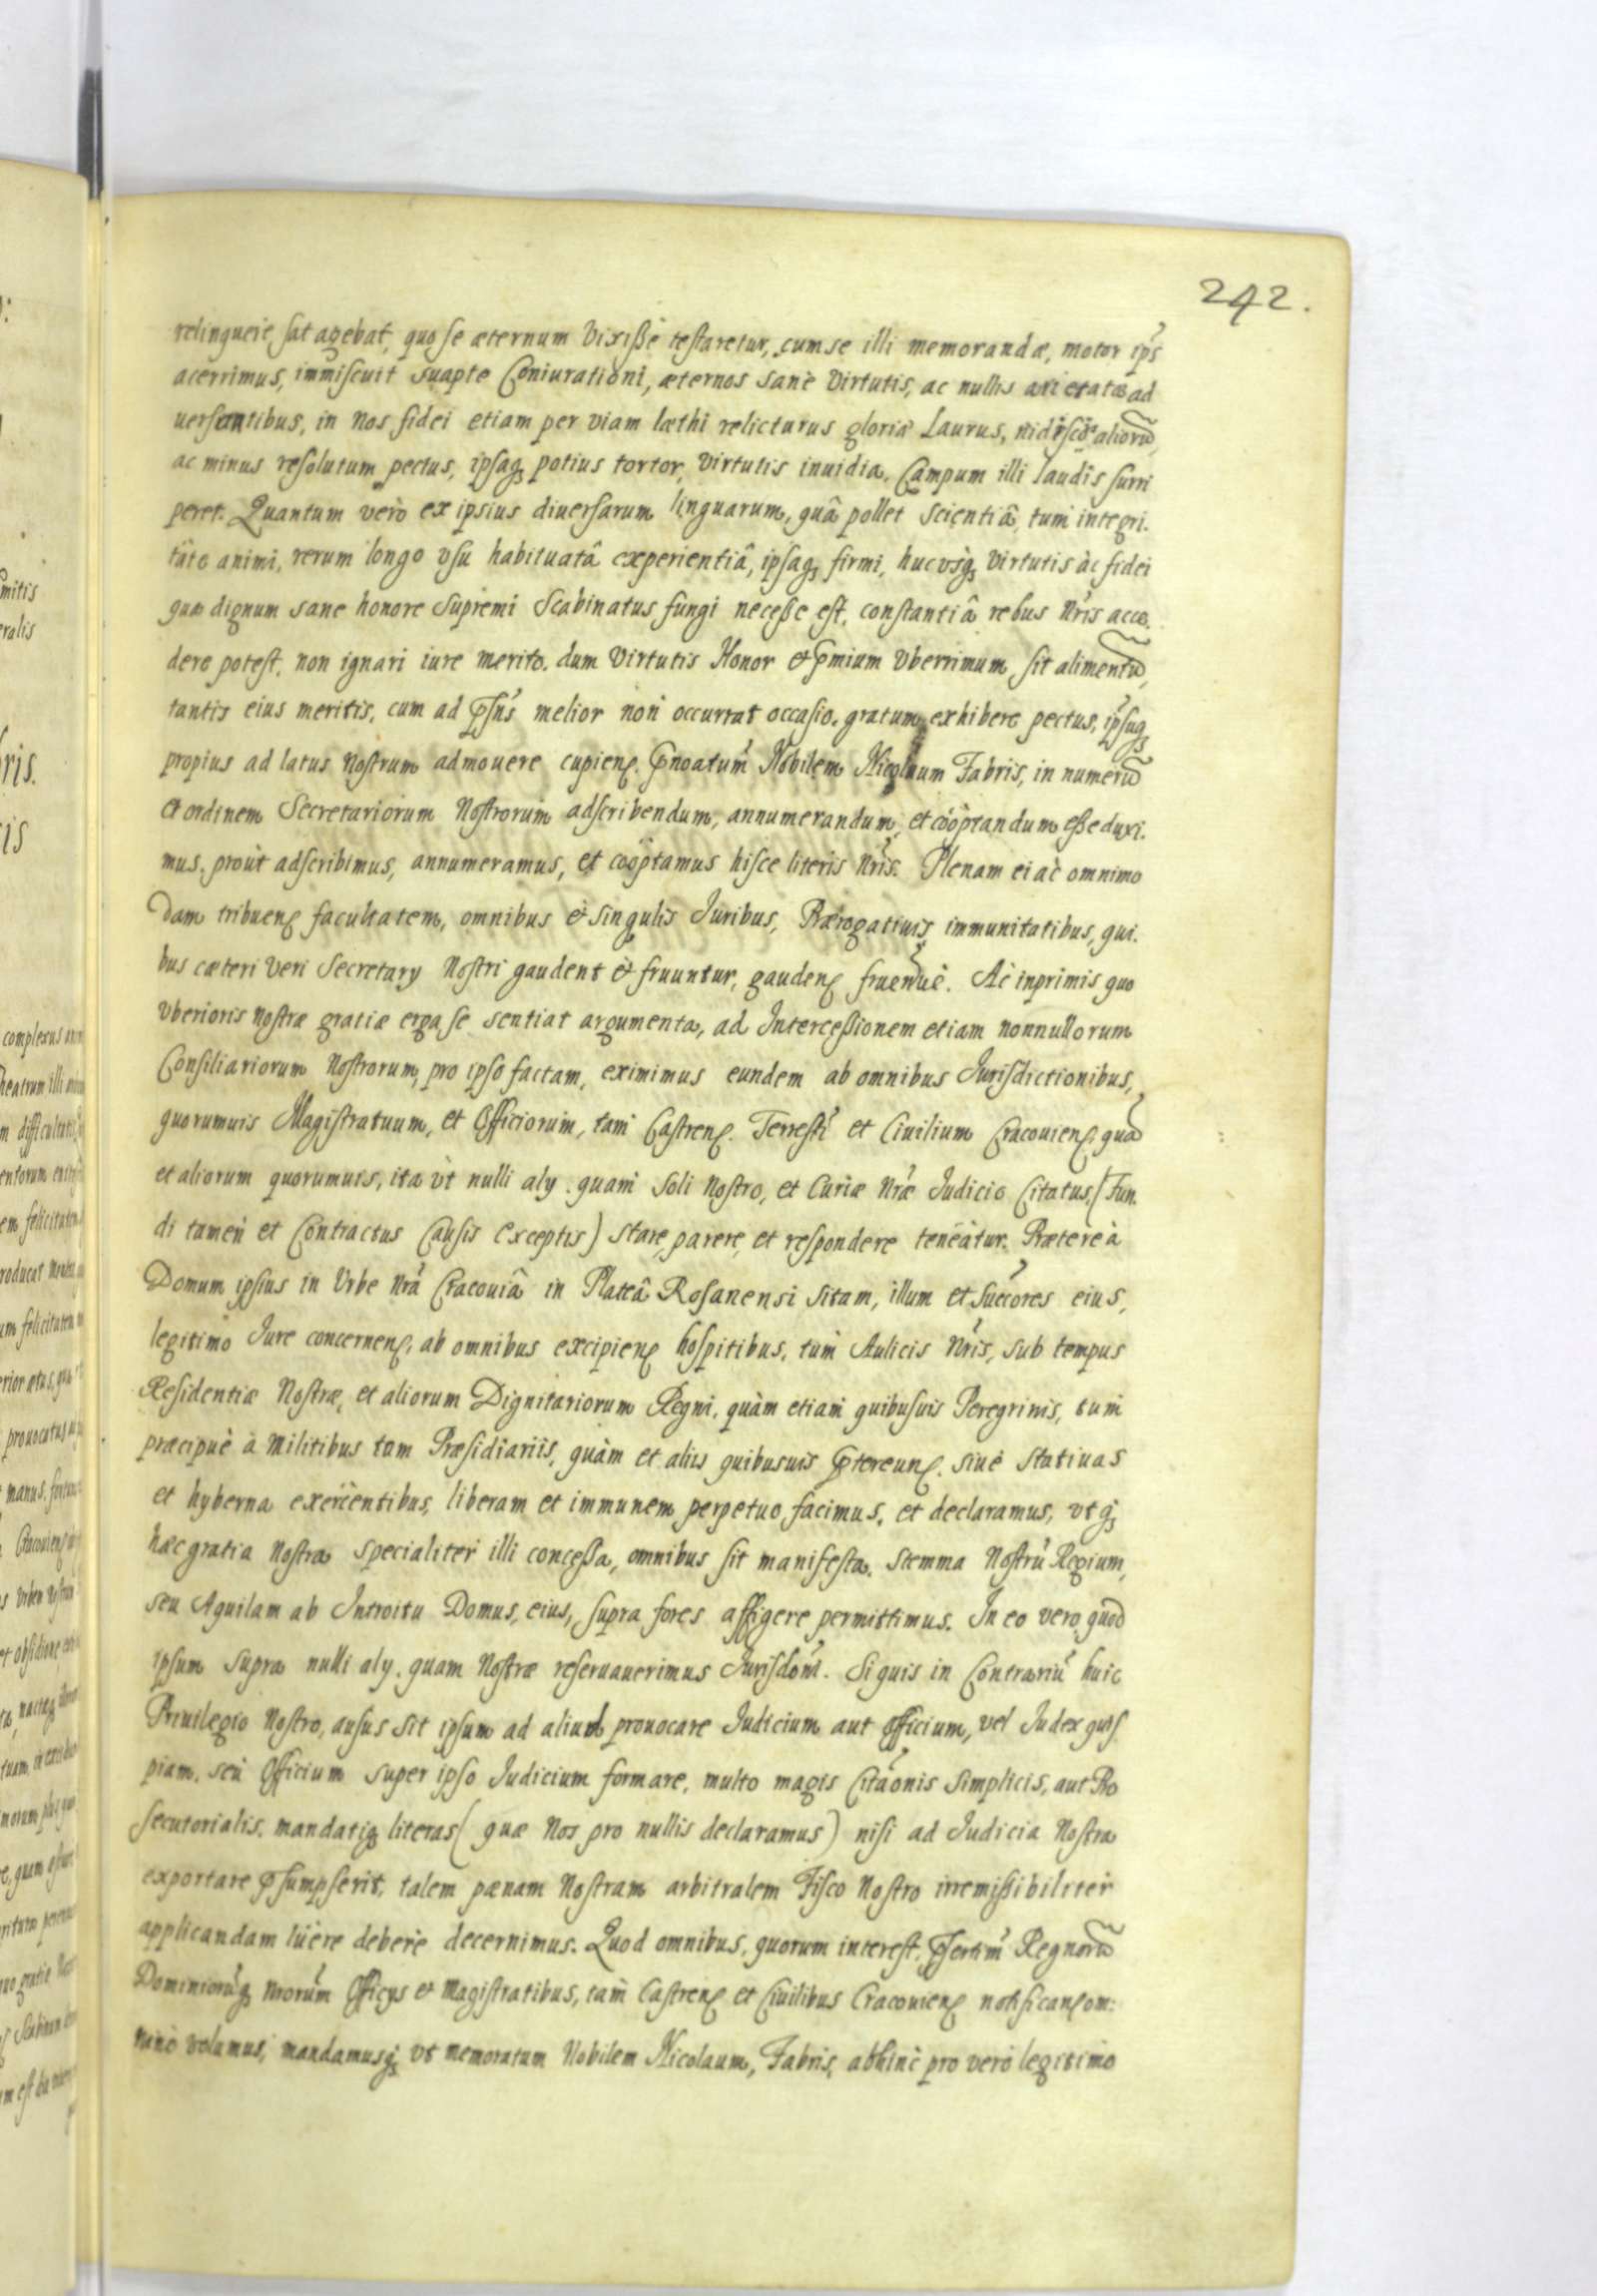 242.
relinquere, sat agebat, quo se æternum Vixiße testaretur, cum se illi memorandæ, motor ips
acerrimus, immiscuit suapte Coniurationi, æternos sanè Virtutis, ac nullis ad
uersantibus, in Nos fidei etiam per viam læthi relicturus gloriæ Laurus, aliorũ,
ac minus resolutum pectus, ipsaq potius tortor, Virtutis inuidia, Campum illi laudis surri
peret. Quantum verò ex ipsius diuersarum linguarum, quâ pollet scientiâ, tum integri.
tate animi, rerum longo vsu habituatâ experientiâ, ipsaq firmi, hucvsq Virtutis àc fidei
qua dignum sane honore Supremi Scabinatus fungi neceße est, constantiâ rebus Nris acce.
dere potest, non ignari iure merito. dum Virtutis Honor et pmium Vberrimum sit alimentũ,
tantis eius meritis, cum ad psns melior non occurrat occasio, gratum exhibere pectus, ipsuq
propius ad latus Nostrum admouere cupien. pnoatum Nobilem Nicolaum Fabris, in numerũ
et ordinem Secretariorum Nostrorum adscribendum, annumerandum, et coòptandum eße duxi.
mus. proùt adscribimus, annumeramus, et coòptamus hisce literis Nris. Plenam ei àc omnimo
dam tribuen facultatem, omnibus et singulis Juribus, Prærogatiuis, immunitatibus, qui.
bus cæteri Veri Secretary Nostri gaudent et fruuntur, gauden fruenuè. Ac inprimis quo
vberioris Nostræ gratiæ erga se sentiat argumenta, ad Interceßionem etiam nonnullorum
Consiliariorum Nostrorum, pro ipso factam, eximimus eundem ab omnibus Jurisdictionibus,
quorumuis Magistratuum, et Officiorum, tam Castren. Terrest et Ciuilium Cracouien. quã
et aliorum quorumuis, ita vt nulli aly. quam soli Nostro, et Curiæ Nræ Judicio Citatus. (Fun.
di tamen et Contractus Causis exceptis) stare, parere, et respondere teneàtur. Prætereà
Domum ipsius in Vrbe Nrâ Cracouiâ in Plateâ Rosanensi sitam, illum et succores eius,
legitimo Jure concernen, ab omnibus excipien hospitibus, tùm Aulicis Nris, sub tempus
Residentiæ Nostræ, et aliorum Dignitariorum Regni, quàm etiam quibusuis Peregrinis, tum
præcipuè à Militibus tam Præsidiariis, quàm et aliis quibusuis ptereun. siuè statiuas
et hyberna exercentibus, liberam et immunem perpetuo facimus, et declaramus, vt q
hæc gratia Nostra specialiter illi conceßa, omnibus sit manifesta. Stemma Nostrũ Regium,
seu Aquilam ab Introitu Domus, eius, supra fores affigere permittimus. In eo vero, quod
ipsum supra nulli aly. quam Nostræ reseruauerimus Jurisdoni. Si quis in Contrariũ huic
Priuilegio Nostro, ausus sit ipsum ad aliud prouocare Judicium aut Officium, vel Judex quis
piam, seù Officium super ipso Judicium formare, multo magis Citaonis simplicis, aut Pro
secutorialis. mandatiq literas (quæ Nos pro nullis declaramus) nisi ad Judicia Nostra
exportare psumpserit, talem pænam Nostram arbitralem Fisco Nostro irremißibiliter
applicandam luère debere decernimus. Quod omnibus, quorum interest, psertim Regnorũ
Dominiorũq Nrorum Officys et Magistratibus, tam Castren et Ciuilibus Cracouien notifican om:
ninò volumus, mandamusq vt memoratum Nobilem Nicolaum, Fabris, abhinc pro verò legitimo